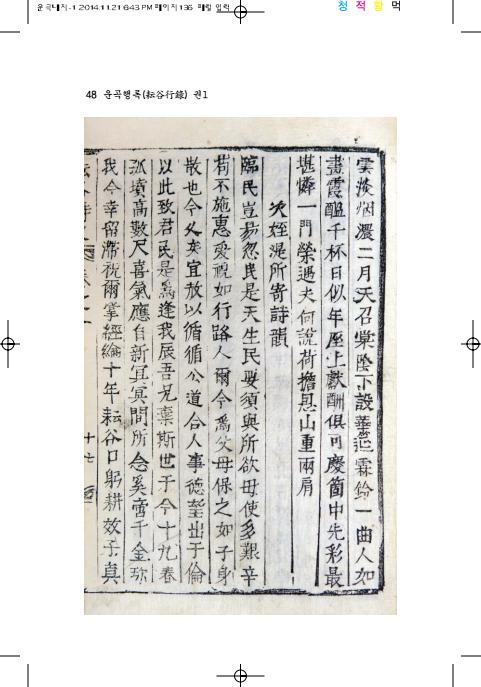 운곡대지-1 2014.11.21 6:43 PM 페이지136
청 적 황 먹
48 운곡행록(耘谷行錄) 권1
雲淡烟濃二月天召棠陰下設華筵霖鈴一曲人如
畫霞醞千杯日似年座上獻酬俱可慶箇中光彩最
堪憐一門榮遇夫何說荷擔恩山重兩肩
次姪湜所寄詩韻
臨民豈易忽民是天生民要須與所欲毋使多艱辛
苟不施惠愛視如行路人爾今爲父母保之如子身
散也令父安宜放以循循公道合人事德望出于倫
以此致君民是爲逢我辰吾兄棄斯世于今十九春
孤墳高數尺喜氣應自新冥冥間所念奚啻千金珎
我今幸留滯祝爾掌經綸十年耘谷口躬耕效子真
十七